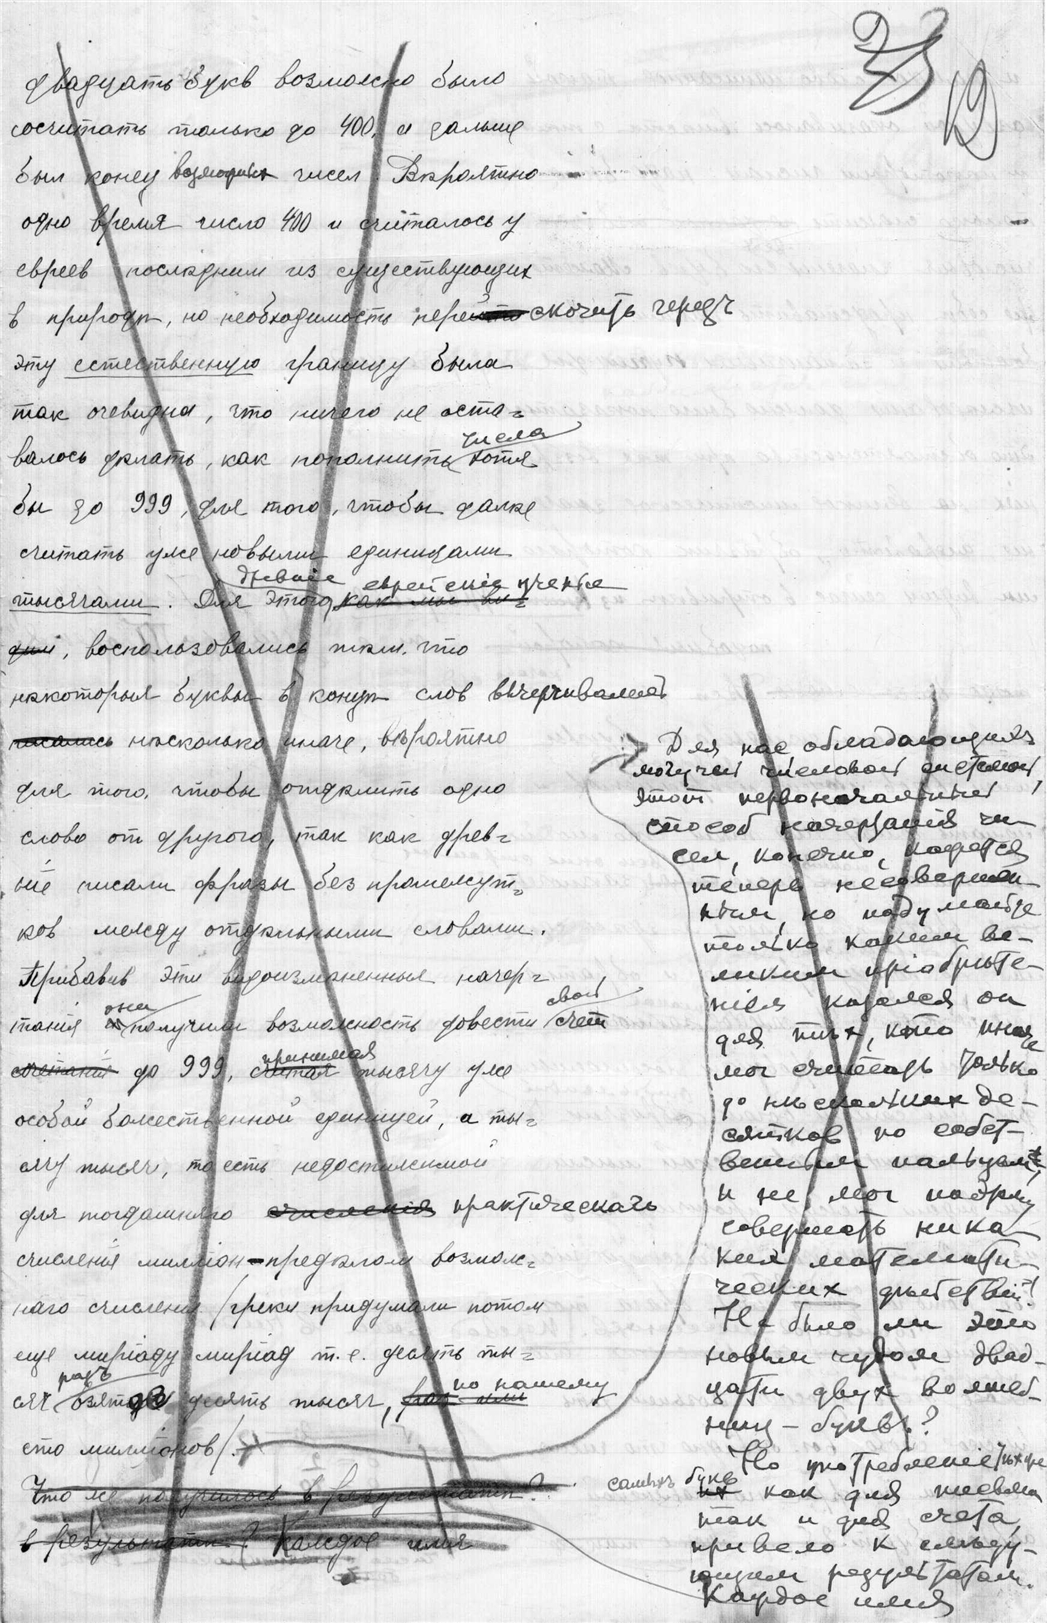 23
19
двадцать букв возможно было
сосчитать только до 400, и дальше
был конец возможных чисел. Вѣроятно
одно время число 400 и считалось у
евреев последним из существующих
в природѣ, но необходимость перескочить черезъ
эту естественную границу была
так очевидна, что ничего не оста=
валось дѣлать, как пополнить числа хотя
бы до 999, для того, чтобы далѣе
считать уже новыми единицами
тысячами. Для этого, древніе еврейскіе ученые
как мы ви=
дим, воспользовались тѣм, что
нѣкоторыя буквы в концѣ слов вычерчивались
писались нѣсколько иначе, вѣроятно
для того, чтобы отдѣлить одно
слово от другого, так как древ=
ніе писали фразы без промежут=
ков между отдѣльными словами.
Прибавив эти видоизмѣненныя начер=
танія они получили возможность довести свой счет
считанія до 999, принимая считая тысячу уже
особой божественной единицей, а ты=
сячу тысяч, то есть недостижимой
для тогдашняго счисленія практическаго
счисленія миллион - предѣлом возмож=
наго счисления /греки придумали потом
еще миріаду миріад т.е. десять ты=
сяч разъ взятое десять тысяч, по нашему
сто миллионов/.
Что же получилось в результатѣ?
в результатѣ? Каждое имя
Для нас обладающих
могучей числовой системой,
этот первоначальный
способ начертанія чи-
сел, конечно, кажется
теперь несовершен-
ным, но подумайте
только каким ве-
ликим пріобрѣте-
ніем казался он
для тѣх, кто иначе
мог считать только
до нѣскольких де-
сятков по собст-
венным пальцам,
и не мог подряд
совершать ника-
ких математи-
ческих дѣйствій!
Не было ли это
новым чудом двад-
цати двух волшеб-
ниц - буквъ?
Но употребленіе тѣх же
самыхъ букв как для письма
так и для счета,
привело к слѣду-
ющим результатам.
Каждое имя